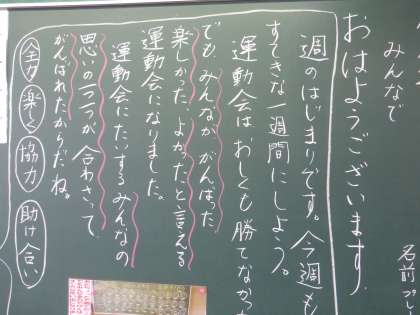 みんなで
おはようございます。
週のはじまりです。今週も
すてきな一週間にしよう。
運動会は おしくも 勝てなかっ
でも、みんなが がんばった
楽しかった、よかったと言える
運動会になりました。
運動会にたいする みんなの
思いの一つ一つが 合わさって、
がんばれたからだね。
全力 楽しく 協力 助け合い
名前プレ